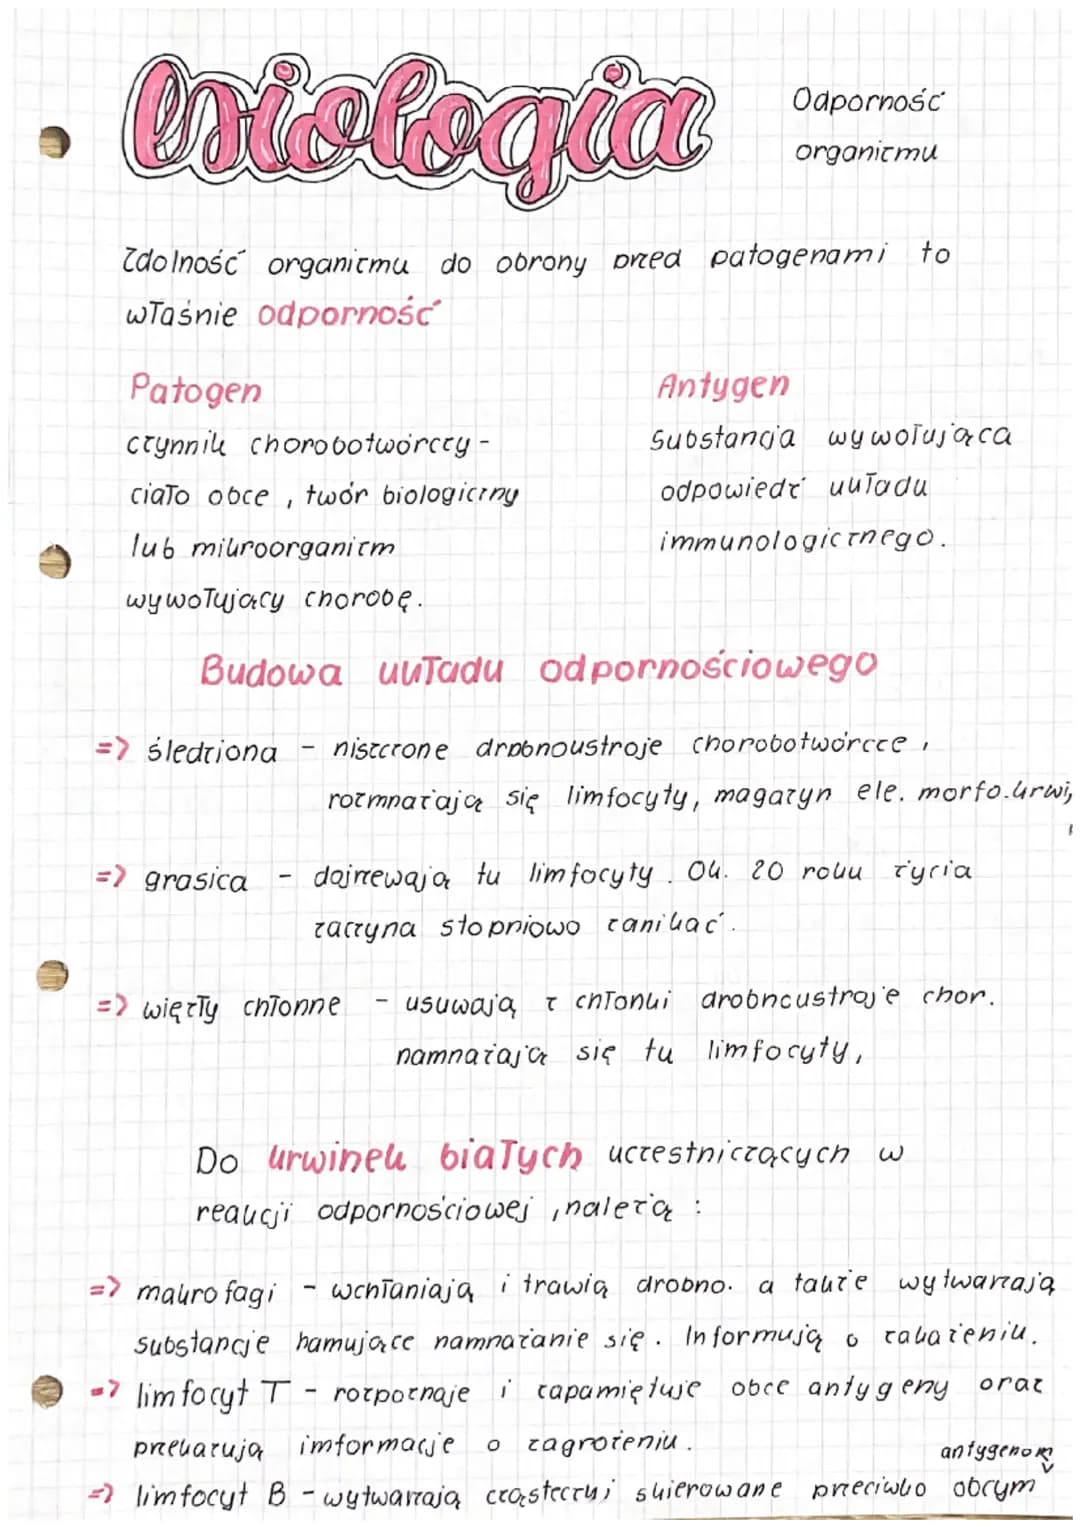 biologia
Odporność
organizmu
Zdolność organizmu do obrony przed patogenami to
właśnie odporność
Patogen
czynnik chorobotwórczy -
ciało obce, twór biologiczny
lub mikroorganizm
wywołujący chorobę.
Antygen
Substancja wywołująca
odpowiedź układu
immunologicznego.
Budowa układu odpornościowego
=> śledziona - niszczone drobnoustroje chorobotwórcze,
rozmnażają się limfocyty, magazyn ele. morfo.krwi,
=> grasica - dojrzewają tu limfocyty. Ok. 20 roku życia
zaczyna stopniowo zanikać.
=> węzły chłonne - usuwają z chłonki drobnoustroje chor.
namnażają się tu limfocyty,
Do krwinek białych uczestniczących w
reakcji odpornościowej, należą:
=> makrofagi - wchłaniają i trawią drobno. a także wytwarzają
substancje hamujące namnażanie się. Informują o zakażeniu.
=> limfocyt T - rozpoznaje i zapamiętuje obce antygeny oraz
przekazują imformacje o zagrożeniu.
antygenom
=> limfocyt B - wytwarzają cząsteczki skierowane przeciwko obcym